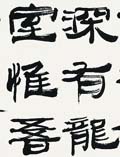 深有龍
室惟吾